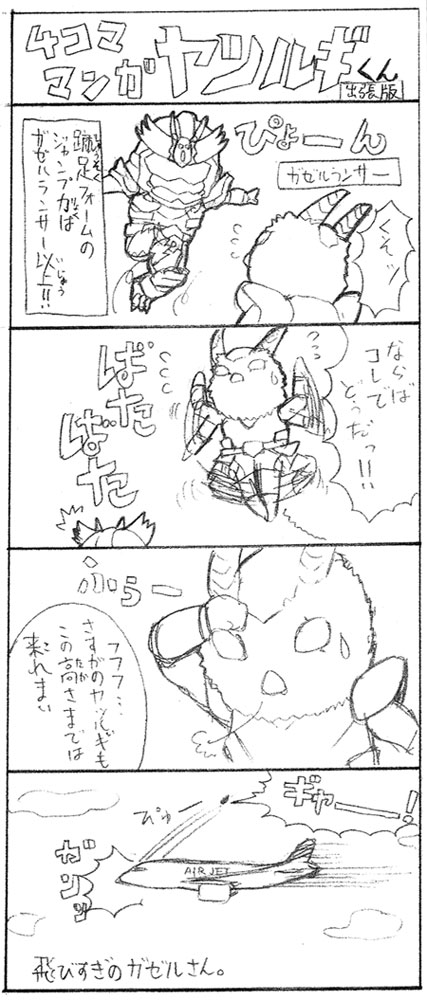 4コマ
マンガ
ヤツルギくん
出張版
ぴょーん
ガゼルランサー
くそッ!
フォームの
ジャンプ力は
ガゼルランサー
以上!!
ならば
コレで
どうだっ!!
ぱた
ぱた
ふぅー
フフフ…
さすがのヤツルギも
この高さまでは
来れまい
ギャーー!
ぴゅー
ガンッ
AIR JET
飛びすぎのガゼルさん。